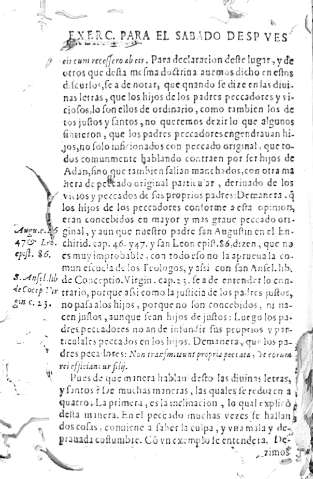 EXERC. PARA EL SABADO DESPVES
eis cum recessero ab eis. Para declaracion deste lugar, y de
otros que desta mesma doctrina auemos dicho en estos
discursos, se a de notar, que quando se dize en las diui
nas letras, que los hijos de los padres peccadores y vi
ciosos, lo son ellos de ordinario, como tambien los de
los justos y santos, no queremos dezir lo que algunos
sintieron, que los padres peccadores engendrauan hi
jos, no solo inficionados con peccado original, que to
dos comunmente hablando contraen por ser hijos de
Adan, sino que tambien salian manchados, con otra ma
nera de peccado original particular, deriuado de los
vicios y peccados de sus proprios padres: Demanera, q̃
los hijos de los peccadores conforme a esta opinion,
eran concebidos en mayor y mas graue peccado ori-
ginal, y aunque nuestro padre san Augustin en el En
chirid. cap. 46. y 47. y san Leon epist. 86. dizen, que no
es muy improbable, con todo esso no la aprueua la co
mun escuela de los Teologos, y assi con san Ansel. lib.
de Conceptio. Virgin. cap. 23. se a de entender lo con
trario, porque assi como la justicia de los padres justos,
no passa a los hijos, porque no son concebidos, ni na-
cen justos, aunque sean hijos de justos: Luego los pa-
dres peccadores no an de infundir sus proprios y par-
ticulares peccados en los hijos. Demanera, que los pa-
dres peccadores: Non transmittunt propria peccata, de eorum
rei efficiantur filij.
Augu. c. 46
47 & Leo.
epist. 86.
S. Ansel. lib.
de Cocep. Vir
gin c. 23.
Pues de que manera hablan desto las diuinas letras,
y santos? De muchas maneras, las quales se reduzen a
quatro. La primera, es la inclinacion, lo qual explicò
desta manera. En el peccado muchas vezes se hallan
dos cosas, conuiene a saber la culpa, y vna mala y de-
prauada costumbre. Cõ vn exemplo se entenderà. De-
zimos